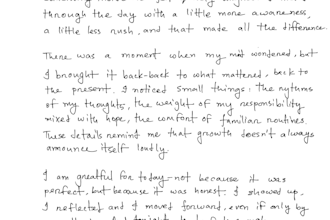 through the day with a little more awareness,
a little less rush, and that made all the difference.
There was a moment when my wondered, but
I brought it back-back to what mattered, back to
the present. I noticed small things: the rythms
of my thoughts, the weight of my responsibility
mixed with hope, the comfort of familiar routines.
These details remind me that growth doesn't always
announce itself loudly.
I am greatful for today-not because it was
perfect, but because it was honest. I showed up,
I reflected and I moved forward, even if only by